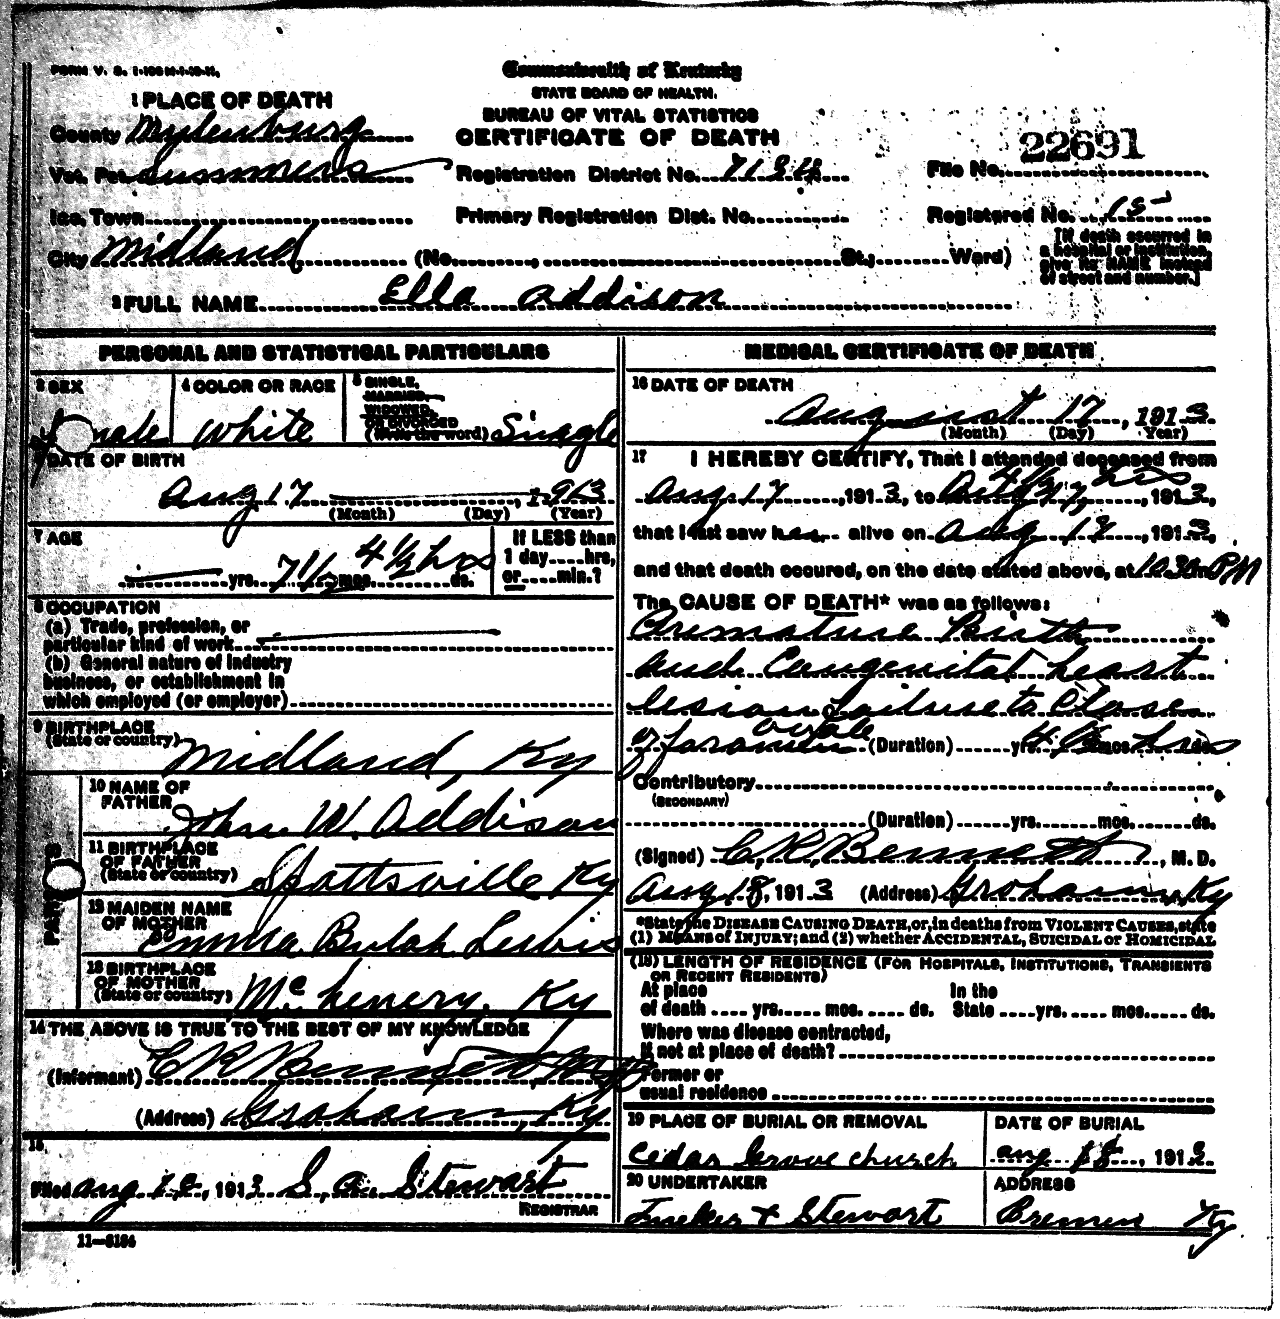 FORM V. S. 1-100M-1-10-11.
Commonwealth of Kentucky
STATE BOARD OF HEALTH.
BUREAU OF VITAL STATISTICS
CERTIFICATE OF DEATH
1 PLACE OF DEATH
County Mulenburg
Vot. Pct. Summers
Inc. Town
City Midland (No. , St.; Ward)
Registration District No. 7184
Primary Registration Dist. No.
File No. 22691
Registered No. 15
[If death occurred in
a hospital or institution,
give its NAME instead
of street and number.]
2 FULL NAME Ella Addison
PERSONAL AND STATISTICAL PARTICULARS
3 SEX
4 COLOR OR RACE White
5 SINGLE,
MARRIED,
WIDOWED,
OR DIVORCED
(Write the word) Single
DATE OF BIRTH
Aug 17, 1913
(Month) (Day) (Year)
7 AGE
yrs. 7 1/2 mos. 4 1/2 hrs ds.
If LESS than
1 day....hrs,
or....min.?
8 OCCUPATION
(a) Trade, profession, or
particular kind of work
(b) General nature of industry
business, or establishment in
which employed (or employer)
9 BIRTHPLACE
(State or country) Midland, Ky
PARENTS
10 NAME OF
FATHER John W. Addison
11 BIRTHPLACE
OF FATHER
(State or country) Spottsville Ky
12 MAIDEN NAME
OF MOTHER Emma Bulah
13 BIRTHPLACE
OF MOTHER
(State or country) McHenery, Ky
14 THE ABOVE IS TRUE TO THE BEST OF MY KNOWLEDGE
(Informant) C R Bennett, M D
(Address) Graham, Ky
15
Filed Aug 18, 1913 S. A. Stewart
REGISTRAR
11—8184
MEDICAL CERTIFICATE OF DEATH
16 DATE OF DEATH
August 17, 1913
(Month) (Day) (Year)
17 I HEREBY CERTIFY, That I attended deceased from
4 1/2 hrs
Aug 17, 1913, to Aug 17, 1913,
that I last saw her alive on Aug 17, 1913,
and that death occured, on the date stated above, at 10 30 PM
The CAUSE OF DEATH* was as follows:
Premature Birth
and Congenital heart
lesion Failure to Close
of foramen ovale (Duration) yrs. 4 1/2 mos. hrs ds.
Contributory
(SECONDARY)
(Duration) yrs. mos. ds.
(Signed) C. R. Bennett, M. D.
Aug 18, 1913 (Address) Graham, Ky
*State the DISEASE CAUSING DEATH, or, in deaths from VIOLENT CAUSES, state
(1) MEANS of INJURY; and (2) whether ACCIDENTAL, SUICIDAL or HOMICIDAL
(18) LENGTH OF RESIDENCE (FOR HOSPITALS, INSTITUTIONS, TRANSIENTS
OR RECENT RESIDENTS)
At place
of death .... yrs. .... mos. .... ds.
In the
State .... yrs. .... mos. .... ds.
Where was disease contracted,
If not at place of death?
Former or
usual residence
19 PLACE OF BURIAL OR REMOVAL
Cedar Grove church
DATE OF BURIAL
Aug 18, 1913
20 UNDERTAKER
& Stewart
ADDRESS
Bremen Ky